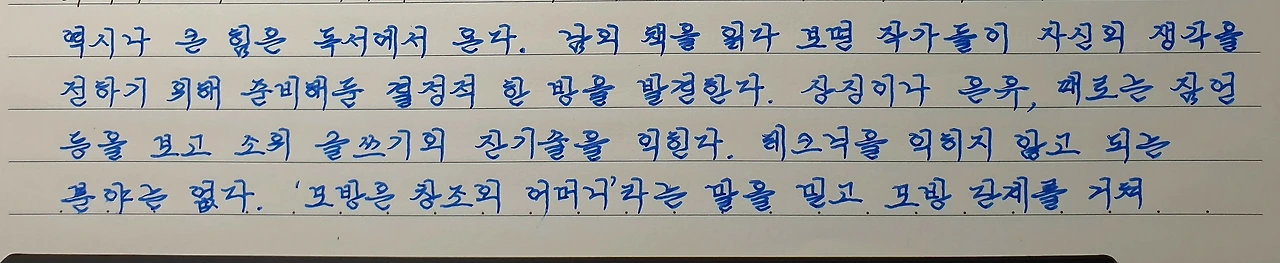 역시나 큰 힘은 독서에서 온다. 남의 책을 읽다 보면 작가들이 자신의 생각을
전하기 위해 준비해둔 결정적 한 방을 발견한다. 상징이나 은유, 때로는 잠언
등을 보고 소위 글쓰기의 잔기술을 익힌다. 테크닉을 익히지 않고 되는
분야는 없다. '모방은 창조의 어머니'라는 말을 믿고 모방 단계를 거쳐